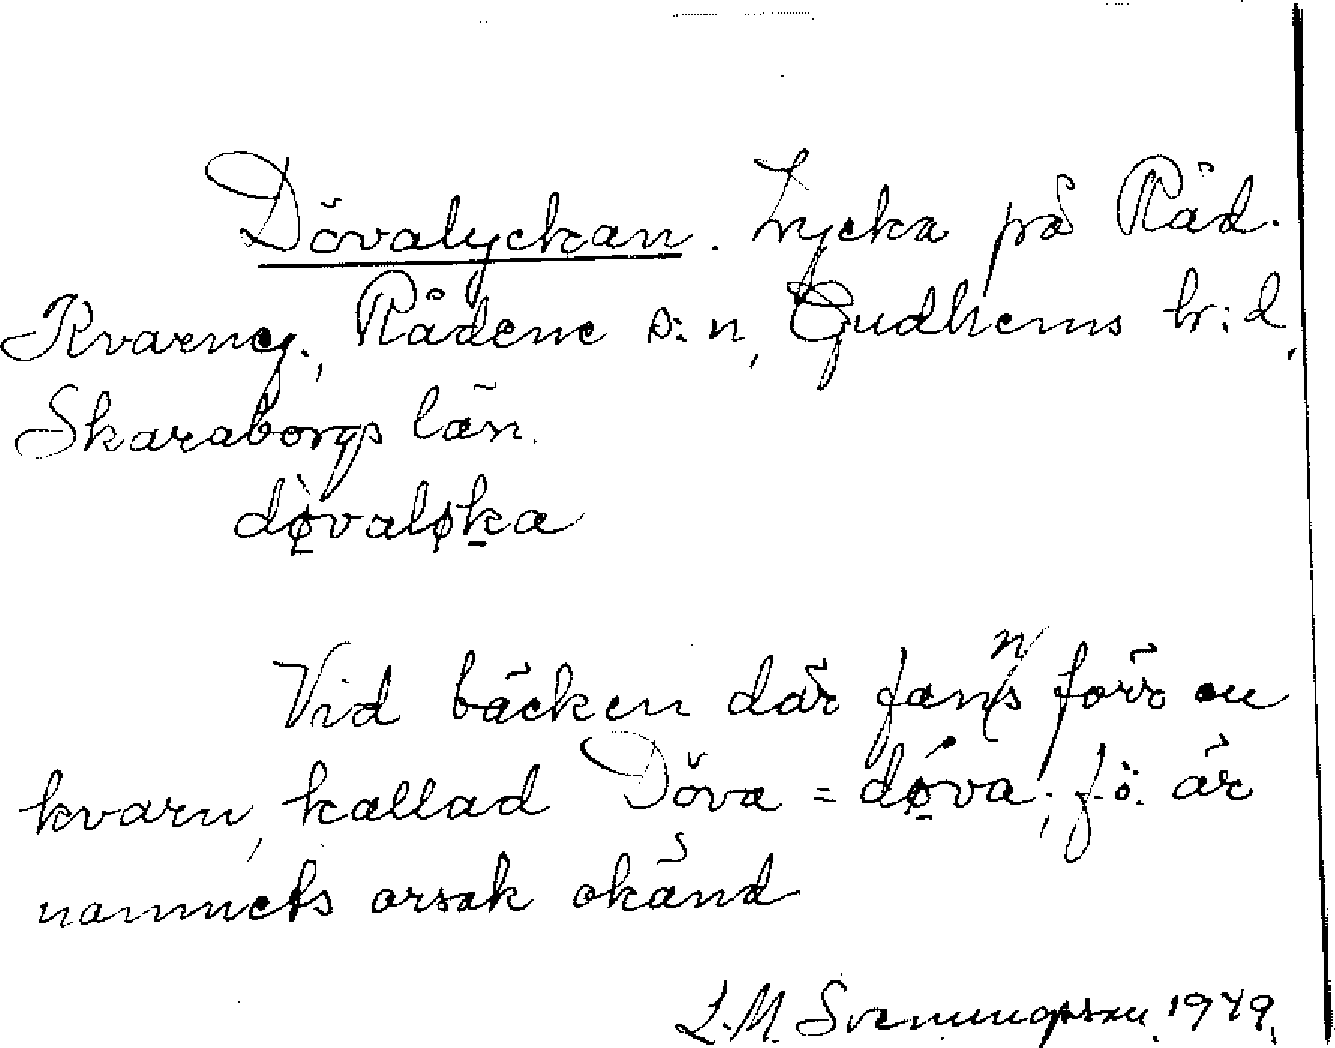 Dövalyckan. Lycka på Råd.
Kvarneg., Rådene s:n, Gudhems hr:d,
Skaraborgs län.
dø̀valøka
Vid bäcken där fanns förr en
kvarn, kallad Döva = døva; f.ö. är
namnets orsak okänd
L.M. Svenungsson 1949.